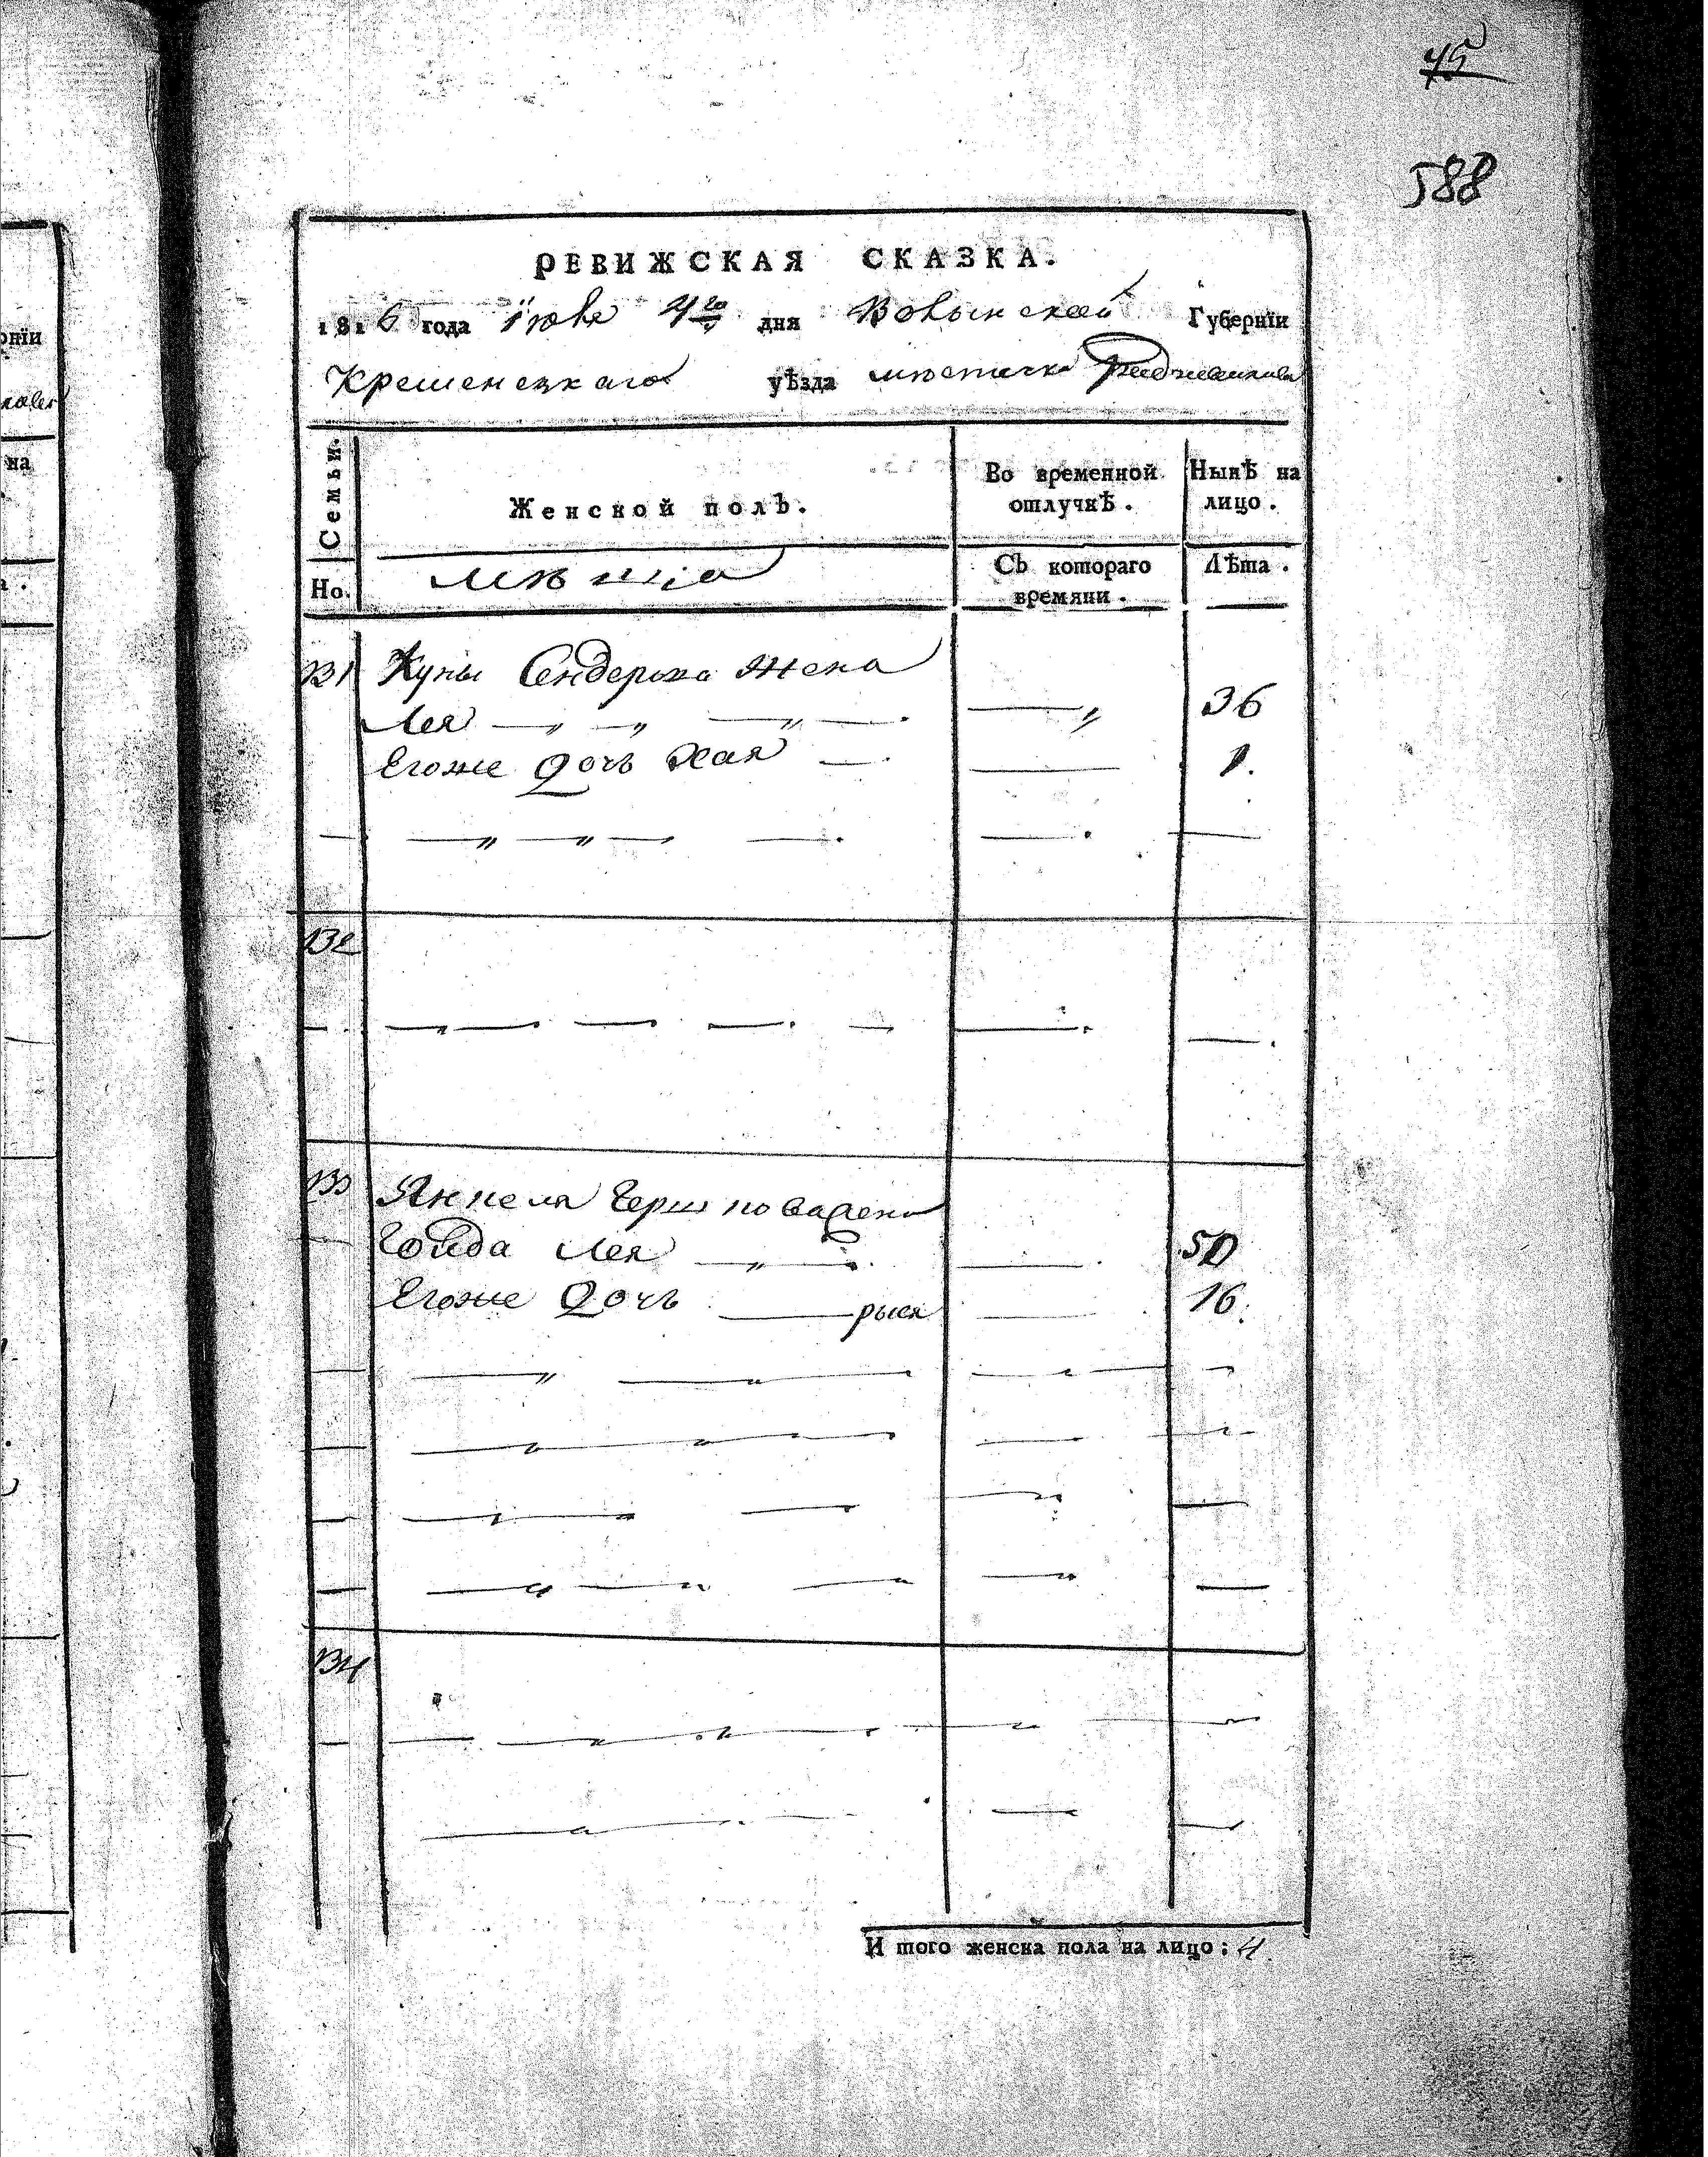 75
588
РЕВИЖСКАЯ СКАЗКА.
1816 года Июля 4го дня Волынской Губернїи
Кременецкаго уѣзда мѣстечка Радзивилова
Семьи.
Женской полъ.
Во временной отлучкѣ.
Нынѣ на лицо.
Но.
Съ котораго времяни.
Лѣта.
131 Куны Сендерова жена
Лея 36
Егоже дочь Хая 1.
132
133 Янкеля Гершковажена
Голда Лея 50
Егоже дочь рыся 16.
134
И того женска пола на лицо: 4
рнїи
на